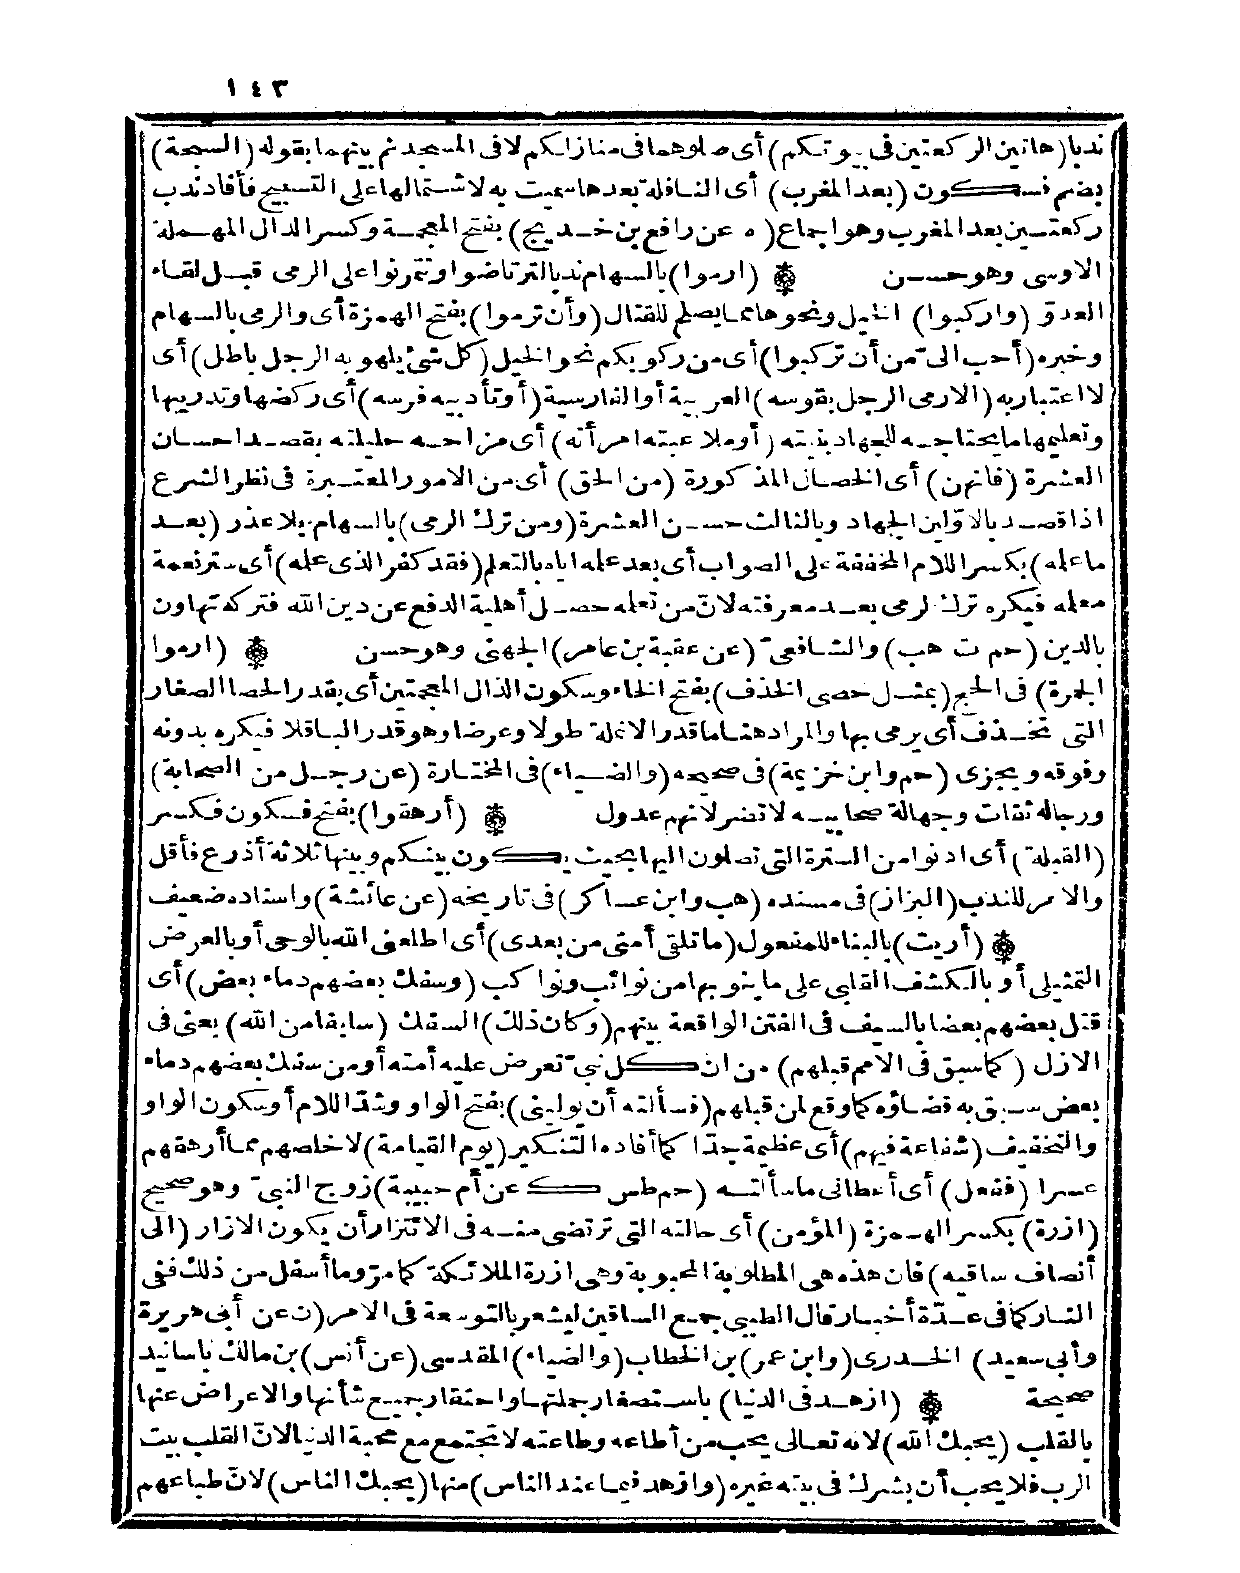 ١٤٣
ندبا (هاتين الركعتين في بيوتكم) أى صلوهما فى منازلكم لا فى المسجد ثم بينهما بقوله (السبحة)
بضم فسكون (بعد المغرب) أى النافلة بعدها سميت به لاشتمالها على التسبيح فأفاد ندب
ركعتين بعد المغرب وهو اجماع (ه عن رافع بن خديج) بفتح المعجمة وكسر الدال المهملة
الاوسى وهو حسن ۞ (ارموا) بالسهام ندبا لترتاضوا وتتمرنوا على الرمى قبل لقاء
العدوّ (واركبوا) الخيل ونحوها مما يصلح للقتال (وأن ترموا) بفتح الهمزة أى والرمى بالسهام
وخبره (أحب الىّ من أن تركبوا) أى من ركوبكم نحو الخيل (كل شئ يلهو به الرجل باطل) أى
لا اعتبار به (الا رمى الرجل بقوسه) العربية أو الفارسية (أو تأديبه فرسه) أى ركضها وتدريبها
وتعليمها ما يحتاج به للجهاد بنيته (أو ملاعبته امرأته) أى مزاحه حليلته بقصد احسان
العشرة (فانهن) أى الخصال المذكورة (من الحق) أى من الامور المعتبرة فى نظر الشرع
اذا قصد بالاوّلين الجهاد وبالثالث حسن العشرة (ومن ترك الرمى) بالسهام بلا عذر (بعد
ما علمه) بكسر اللام المخففة على الصواب أى بعد علمه اياه بالتعلم (فقد كفر الذى علمه) أى ستر نعمة
معلمه فيكره ترك الرمى بعد معرفته لانّ من تعلمه حصل أهلية الدفع عن دين الله فتركه تهاون
بالدين (حم ت هب) والشافعىّ (عن عقبة بن عامر) الجهنى وهو حسن ۞ (ارموا
الجمرة) فى الحج (بمثل حصى الخذف) بفتح الخاء وسكون الذال المعجمتين أى بقدر الحصا الصغار
التى تخذف أى يرمى بها والمراد هنا ما قدر الانملة طولا وعرضا وهو قدر الباقلا فيكره بدونه
وفوقه ويجزى (حم وابن خزيمة) فى صحيحه (والضياء) فى المختارة (عن رجل من الصحابة)
ورجاله ثقات وجهالة صحابيه لا تضر لانهم عدول ۞ (أرهقوا) بفتح فسكون فكسر
(القبلة) أى ادنوا من السترة التى تصلون اليها بحيث يكون بينكم وبينها ثلاثة أذرع فأقل
والامر للندب (البزاز) فى مسنده (هب وابن عساكر) فى تاريخه (عن عائشة) واسناده ضعيف
۞ (أريت) بالبناء للمفعول (ما تلقى أمتى من بعدى) أى اطلعنى الله بالوحى أو بالعرض
التمثيلى أو بالكشف القلبى على ما ينوبها من نوائب ونواكب (وسفك بعضهم دماء بعض) أى
قتل بعضهم بعضا بالسيف فى الفتن الواقعة بينهم (وكان ذلك) السفك (سابقا من الله) يعنى فى
الازل (كما سبق فى الامم قبلهم) من ان كل نبىّ تعرض عليه أمته أو من سفك بعضهم دماء
بعض سبق به قضاؤه كما وقع لمن قبلهم (فسألته أن يولينى) بفتح الواو وشدّ اللام أو سكون الواو
والتخفيف (شفاعة فيهم) أى عظيمة جدّا كما أفاده التنكير (يوم القيامة) لاخلصهم مما أرهقهم
عسرا (ففعل) أى أعطانى ما سألته (حم طس ك عن أم حبيبة) زوج النبىّ وهو صحيح
(ازرة) بكسر الهمزة (المؤمن) أى حالته التى ترتضى منه فى الائتزار أن يكون الازار (الى
أنصاف ساقيه) فان هذه هى المطلوبة المحبوبة وهى ازرة الملائكة كما مرّ وما أسفل من ذلك ففى
النار كما فى عدّة أخبار قال الطيبى جمع الساقين ليشعر بالتوسعة فى الامر (ن عن أبى هريرة
وأبى سعيد) الخدرى (وابن عمر) بن الخطاب (والضياء) المقدسى (عن أنس) بن مالك باسانيد
صحيحة ۞ (ازهد فى الدنيا) باستصغار جملتها واحتقار جميع شأنها والاعراض عنها
بالقلب (يحبك الله) لانه تعالى يحب من أطاعه وطاعته لا تجتمع مع محبة الدنيا لانّ القلب بيت
الرب فلا يحب أن يشرك فى بيته غيره (وازهد فيما عند الناس) منها (يحبك الناس) لانّ طباعهم